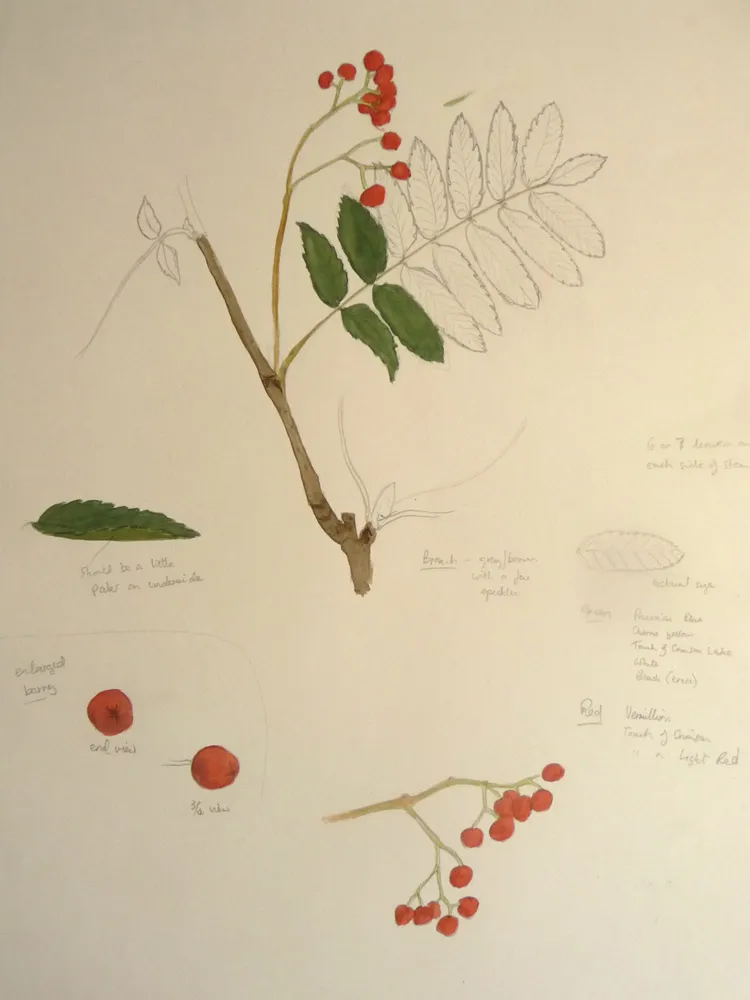 6 or 7 leaves on
each side of stem
Should be a little
paler on underside
Branch - grey/brown
with a few
speckles
actual size
Green Prussian Blue
Chrome yellow
Touch of Crimson Lake
White
Black (trace)
enlarged
berry
end view
Red Vermillion
Touch of Crimson
" " Light Red
3/4 view